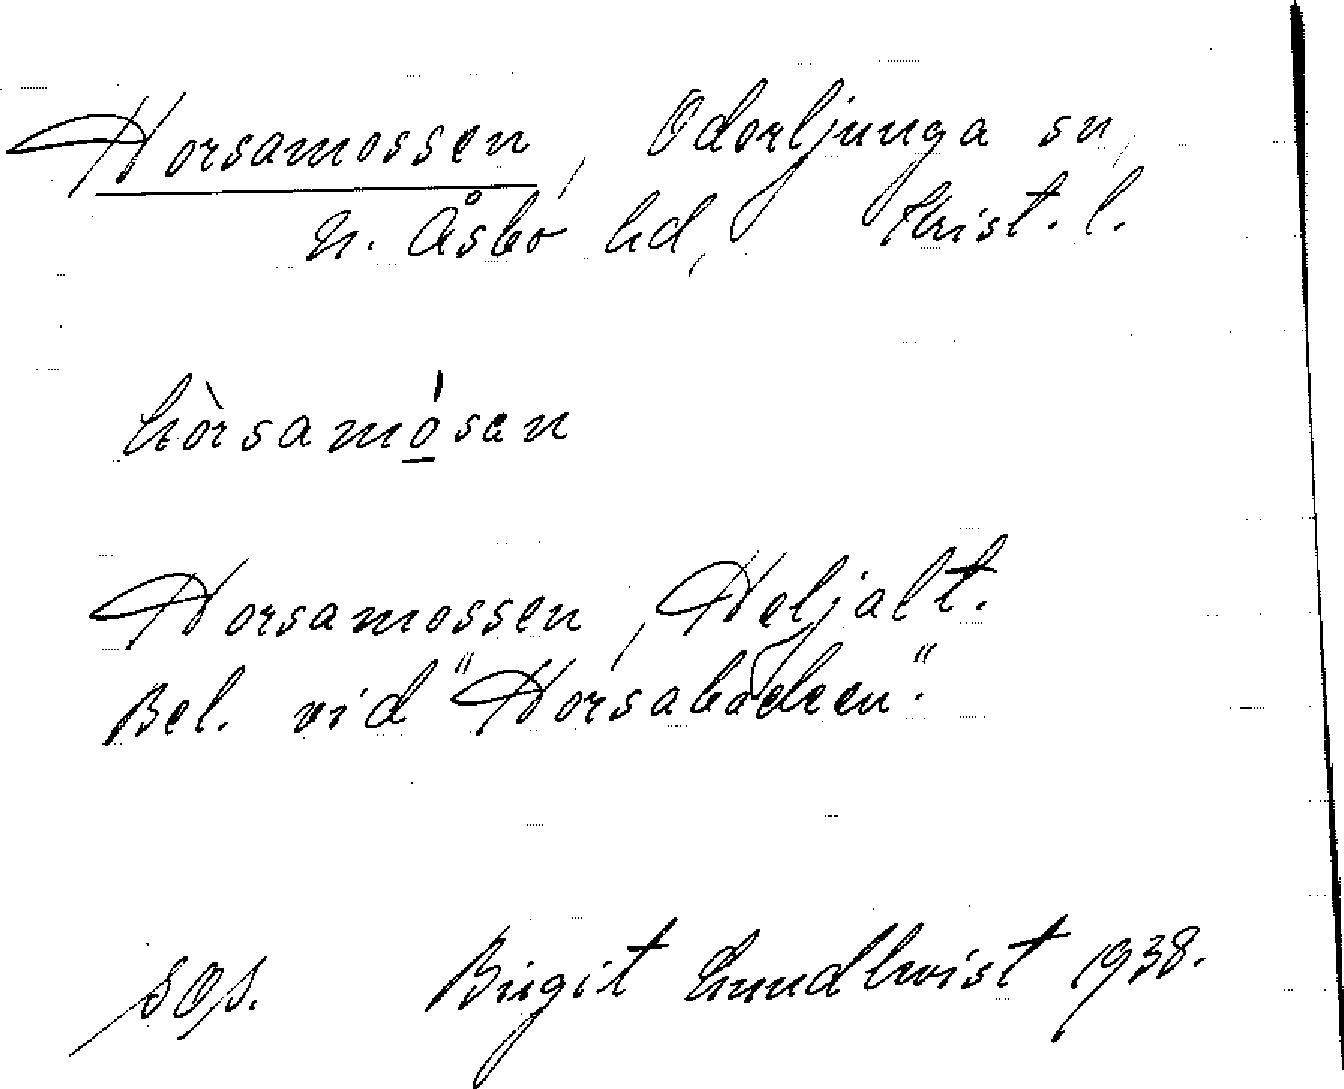 Horsamossen, Oderljunga sn,
N. Åsbo hd, Krist. l.
hòrsamó̱san
Horsamossen, Heljalt.
Bel. vid "Horsabacken".
SOJ. Birgit Lundkvist 1938.